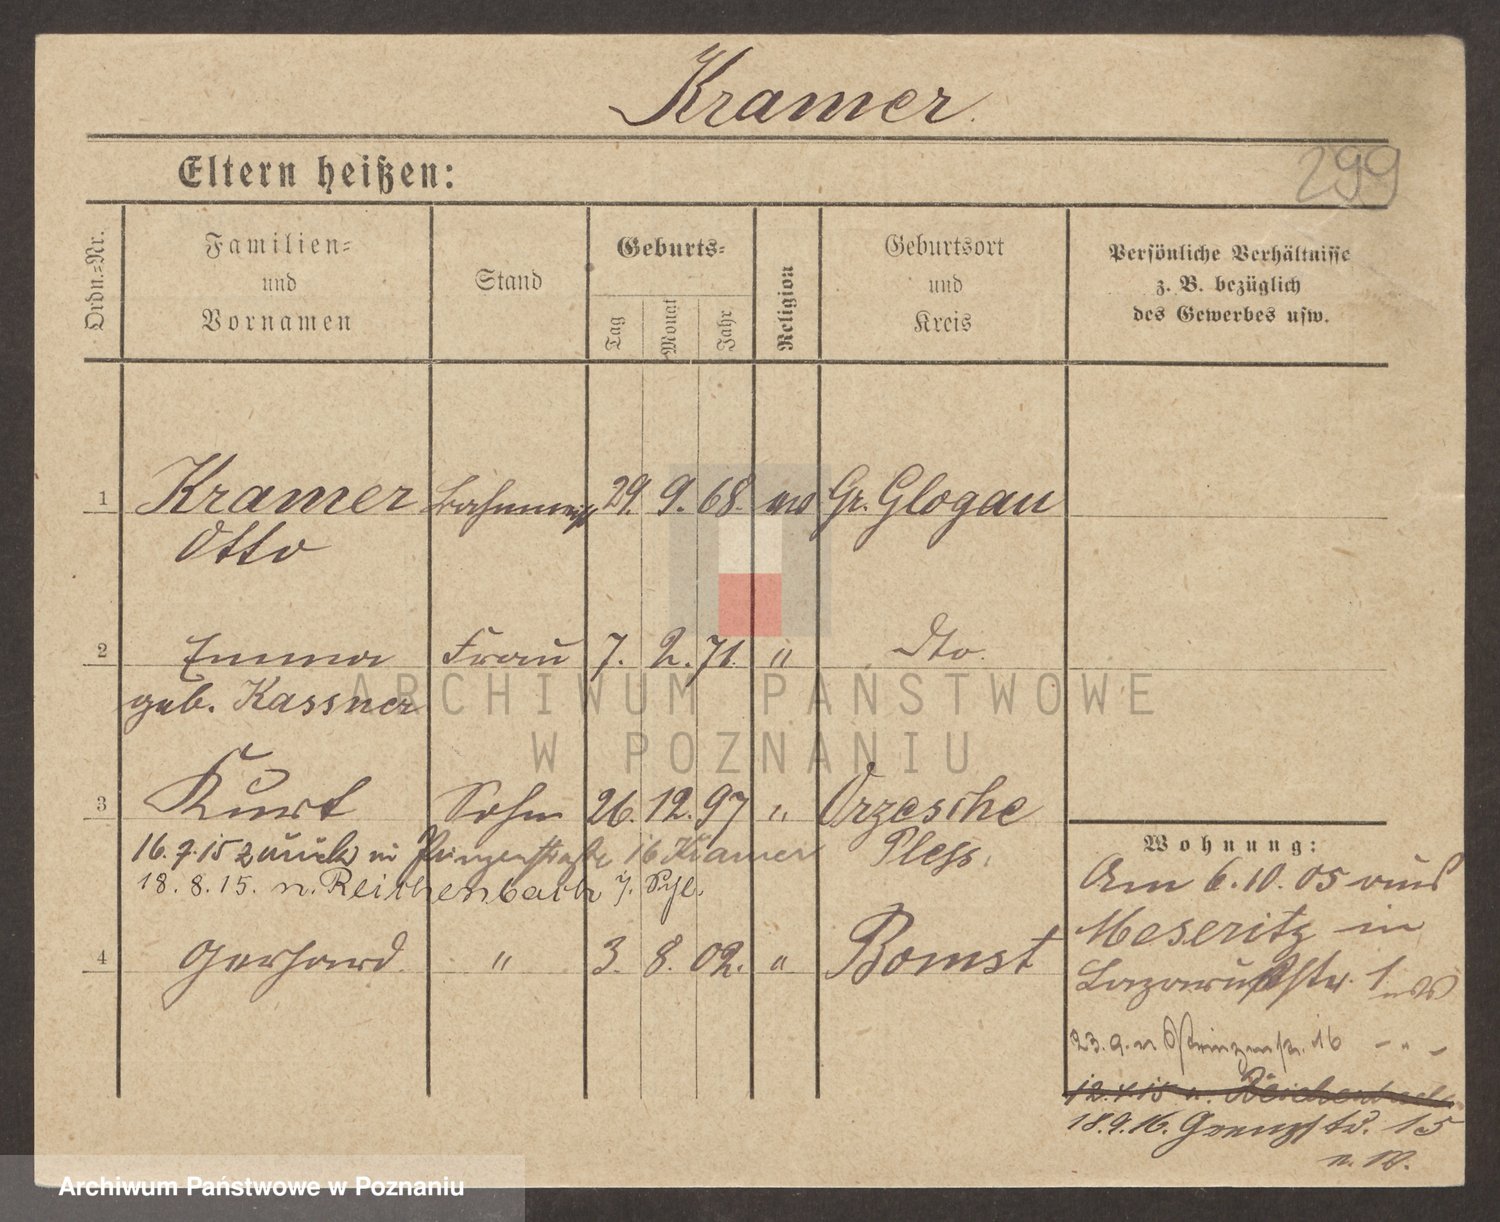 Kramer.
299
Eltern heißen:
Ordn.=Nr.
Familien=
und
Vornamen
Stand
Geburts=
Tag
Monat
Jahr
Religion
Geburtsort
und
Kreis
Persönliche Verhältnisse
z. B. bezüglich
des Gewerbes usw.
1 Kramer 29. 9. 68. Gr. Glogau
Otto
2 Emma Frau 7. 2. 71. " Dto.
geb. Kassner
3 Kurt Sohn 26. 12. 97 " Orzesche
16.7.15 zurück in Prinzenstraße 16 Kramer Pless.
18. 8. 15. n. Reichenbach
4 Gerhard. " 3. 8. 02. " Bomst
Wohnung:
Am 6.10.05 aus
Meseritz in
Lazarusstr. 1
23.9. Prinzenstr. 16 - " -
12.4.15 n. Reichenbach
18.9.16. Grenzstr. 15
ARCHIWUM PAŃSTWOWE
W POZNANIU
Archiwum Państwowe w Poznaniu